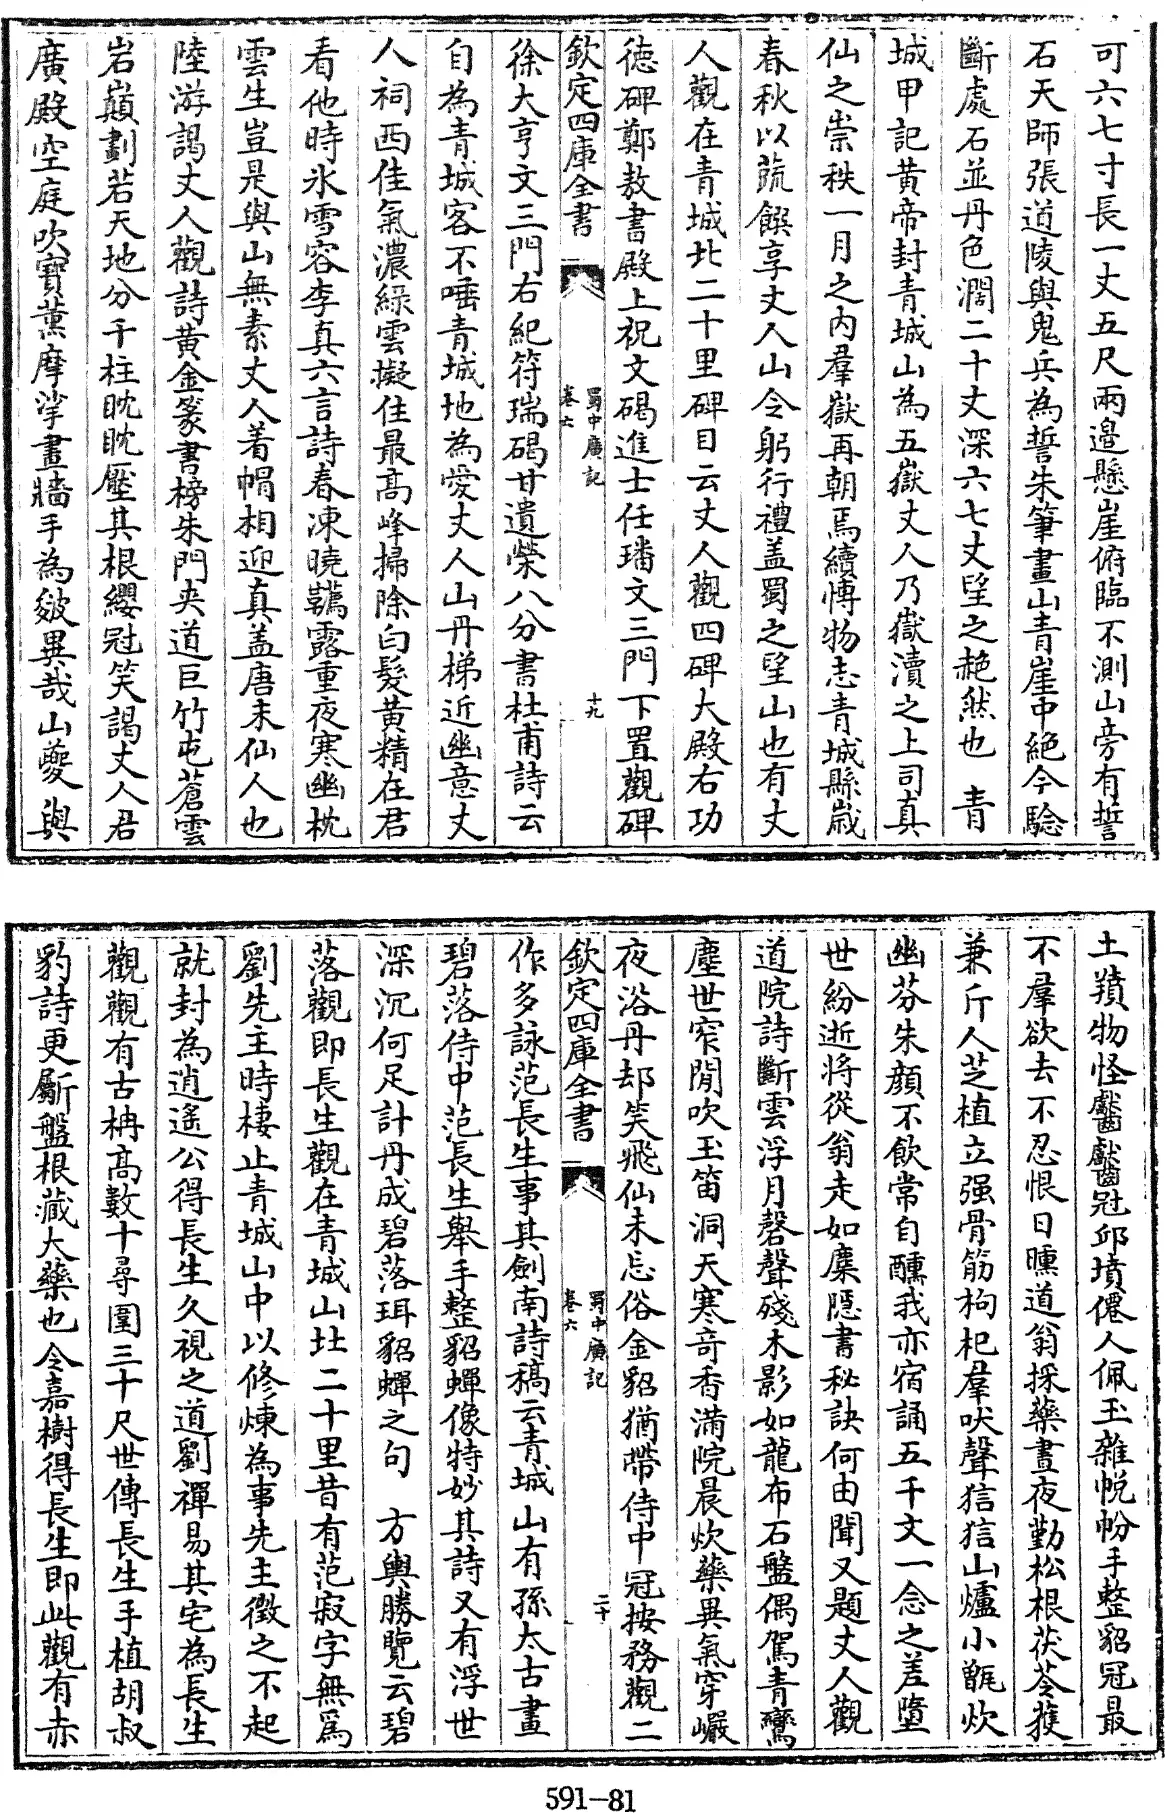 可六七寸長一丈五尺兩邉懸崖俯臨不測山旁有誓
石天師張道陵與鬼兵為誓朱筆畫山青崖中絶今驗
斷處石並丹色濶二十丈深六七丈望之赩然也　青
城甲記黄帝封青城山為五嶽丈人乃嶽瀆之上司真
仙之崇秩一月之内羣嶽再朝焉續愽物志青城縣嵗
春秋以蔬饌享丈人山令躬行禮盖蜀之望山也有丈
人觀在青城北二十里碑目云丈人觀四碑大殿右功
徳碑鄭敖書殿上祝文碣進士任璠文三門下置觀碑
欽定四庫全書
蜀中廣記
卷六
十九
徐大亨文三門右紀符瑞碣甘遺榮八分書杜甫詩云
自為青城客不唾青城地為愛丈人山丹梯近幽意丈
人祠西佳氣濃緑雲擬住最髙峰掃除白髮黄精在君
看他時氷雪容李真六言詩春凍曉鞲露重夜寒幽枕
雲生豈是與山無素丈人着帽相迎真盖唐末仙人也
陸游謁丈人觀詩黄金篆書榜朱門夾道巨竹屯蒼雲
岩巔劃若天地分千柱眈眈壓其根纓冠笑謁丈人君
廣殿空庭吹寳薰摩挲畫牆手為皴異哉山夔與
土羵物怪齾齾冠邱墳僊人佩玉雜帨帉手整貂冠最
不羣欲去不忍恨日曛道翁採藥晝夜勤松根茯苓獲
兼斤人芝植立强骨筋枸杞羣吠聲狺狺山爐小甑炊
幽芬朱顔不飲常自醺我亦宿誦五千文一念之差墮
世紛逝將從翁走如麋隱書秘訣何由聞又題丈人觀
道院詩斷雲浮月磬聲殘木影如龍布石盤偶駕青鸞
塵世窄閒吹玉笛洞天寒竒香滿院晨炊藥異氣穿巖
夜浴丹却笑飛仙未忘俗金貂猶帶侍中冠按務觀二
欽定四庫全書
蜀中廣記
卷六
二十
作多詠范長生事其劍南詩稿云青城山有孫太古畫
碧落侍中范長生舉手整貂蟬像特妙其詩又有浮世
深沉何足計丹成碧落珥貂蟬之句　方輿勝覽云碧
落觀即長生觀在青城山北二十里昔有范寂字無為
劉先主時棲止青城山中以修煉為事先主徴之不起
就封為逍遙公得長生久視之道劉禪易其宅為長生
觀觀有古柟髙數十尋圍三十尺世傳長生手植胡叔
豹詩更斸盤根藏大藥也令嘉樹得長生即此觀有赤
591-81